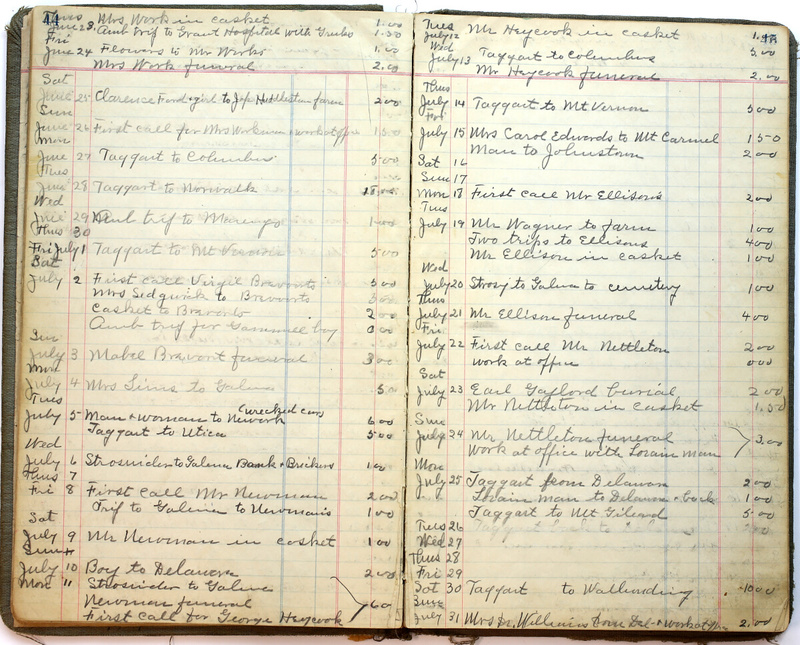 44
Thus
June 23. Mrs. Work in casket 1.00
Amb trip to Grant Hospital with Grubs 1.50
Fri
June 24 Flowers to Mr Works 1.00
Mrs Work funeral 2.00
Sat
June 25 Clarence Ford + girl to Jeff Huddleston farm 200
Sun
June 26 First call for Mrs Workman + work at office 150
Mon
June 27 Taggart to Columbus 500
Tues
June 28 Taggart to Norwalk
Wed
June 29 Amb trip to Marengo 100
Thus 30
Fri July 1 Taggart to Mt Vernon 500
Sat
July 2 First call Virgil Bravonts 500
Mrs Sedgwick to Bravonts
Casket to Bravonts 200
Amb trip for Gammell boy 000
Sun
July 3 Mabel Bravont funeral 300
Mon
July 4 Mrs Sims to Galena
Tues
July 5 Man + woman to Newark (wrecked car) 600
Taggart to Utica 500
Wed
July 6 Strosnider to Galena Bank + Brickers 100
Thus 7
Fri 8 First Call Mr Newman 200
Trip to Galena to Newman's 100
Sat
July 9 Mr Newman in casket 100
Sun
July 10 Boy to Delaware 200
Mon 11 Strosnider to Galena
Newman funeral 600
First call for George Heycook
45
Tues
July 12 Mr Heycook in casket
Wed
July 13 Taggart to Columbus 5.00
Mr Heycook funeral 2.00
Thus
July 14 Taggart to Mt Vernon 500
Fri
July 15 Mrs Carol Edwards to Mt Carmel 150
Man to Johnstown 200
Sat 16
Sun 17
Mon 18 First call Mr Ellison's 200
Tues
July 19 Mr Wagner to farm 100
Two trips to Ellisons 400
Mr Ellison in casket 100
Wed
July 20 Strosy to Galena to cemetery 100
Thus
July 21 Mr Ellison funeral 400
Fri
July 22 First Call Mr Nettleton 200
work at office 000
Sat
July 23 Earl Gaylord burial 200
Mr Nettleton in casket 1.50
Sun
July 24 Mr Nettleton funeral 3.00
Work at office with Lorain Man
Mon
July 25 Taggart from Delaware 200
Lorain man to Delaware + back 100
Taggart to Mt Gilead 500
Tues 26
Wed 27
Thus 28
Fri 29
Sat 30 Taggart to Walhonding 1000
Sun
July 31 Mrs Dr. Williams from Del + work at 2.00